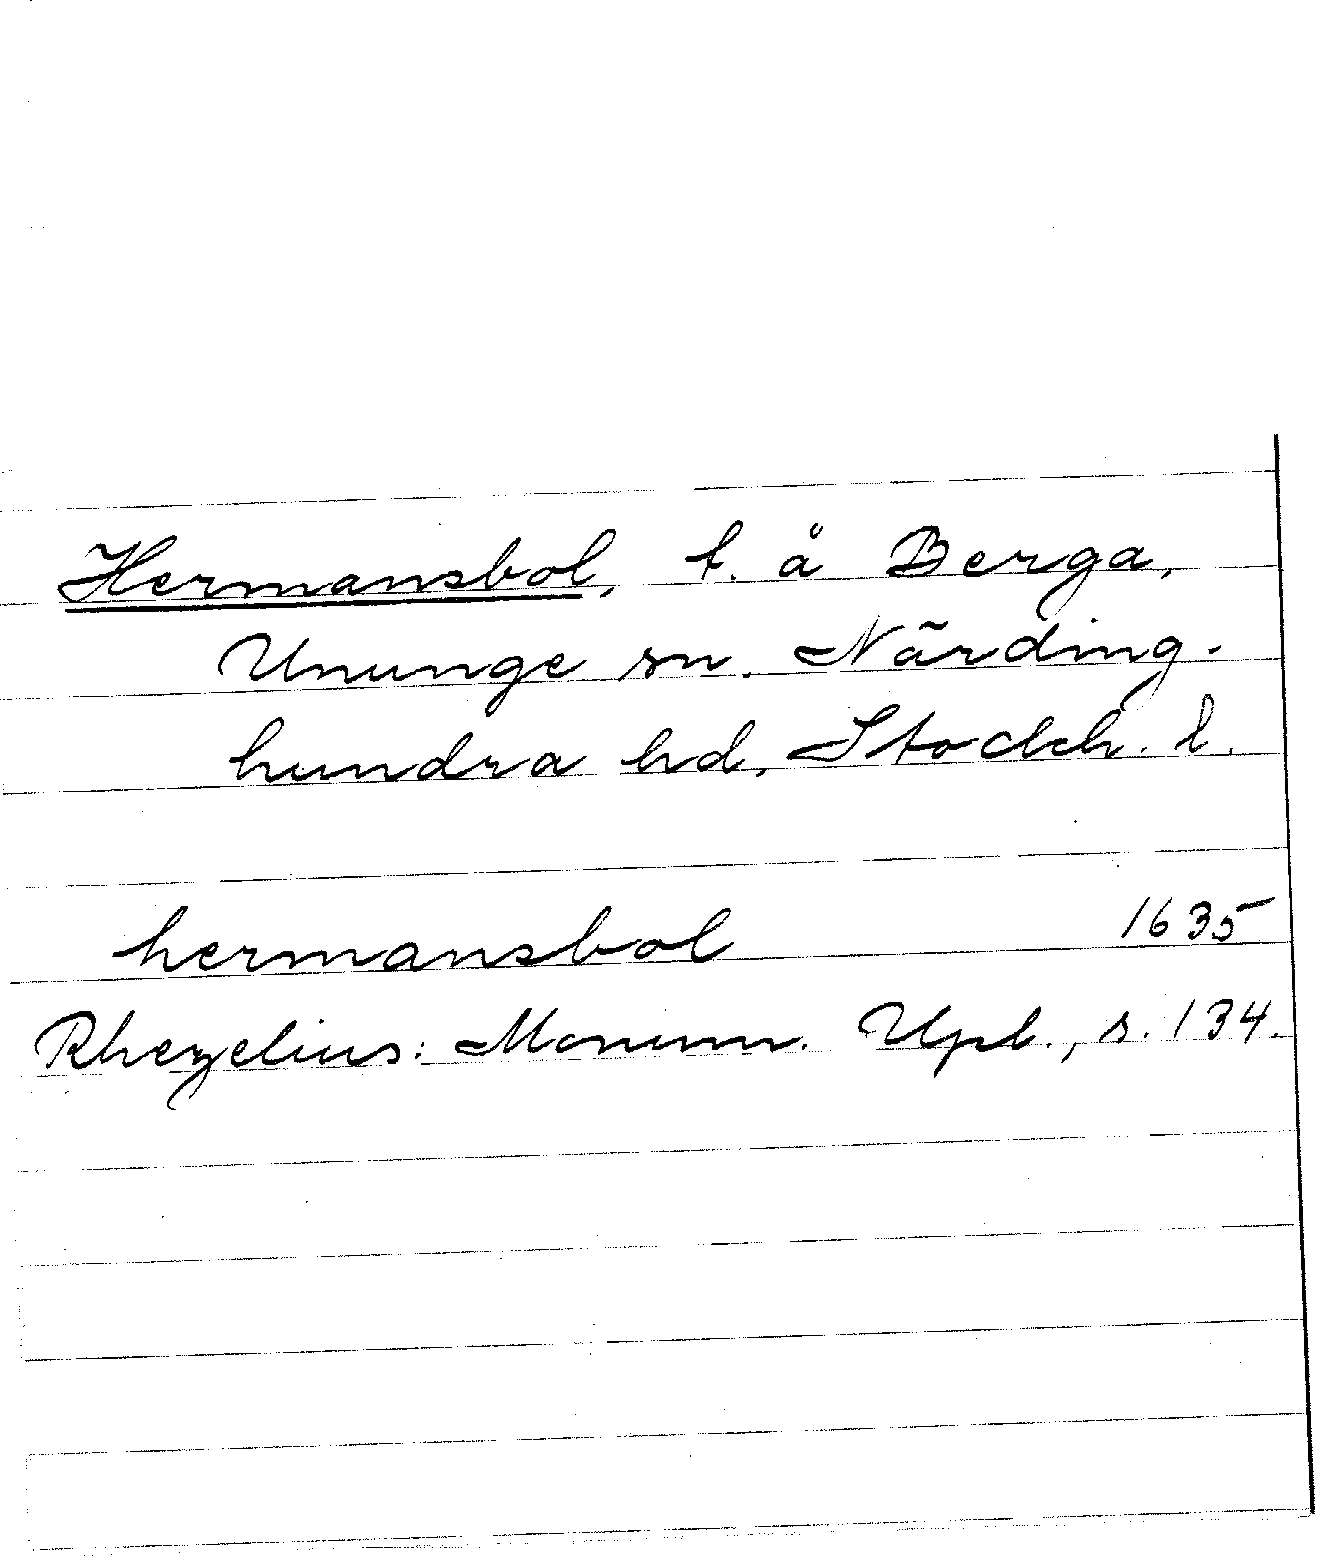 Hermansbol, t. å Berga,
Ununge sn. Närding-
hundra hd, Stockh. l.
hermansbol 1635
Rhezelius: Monum. Upl., s. 134.